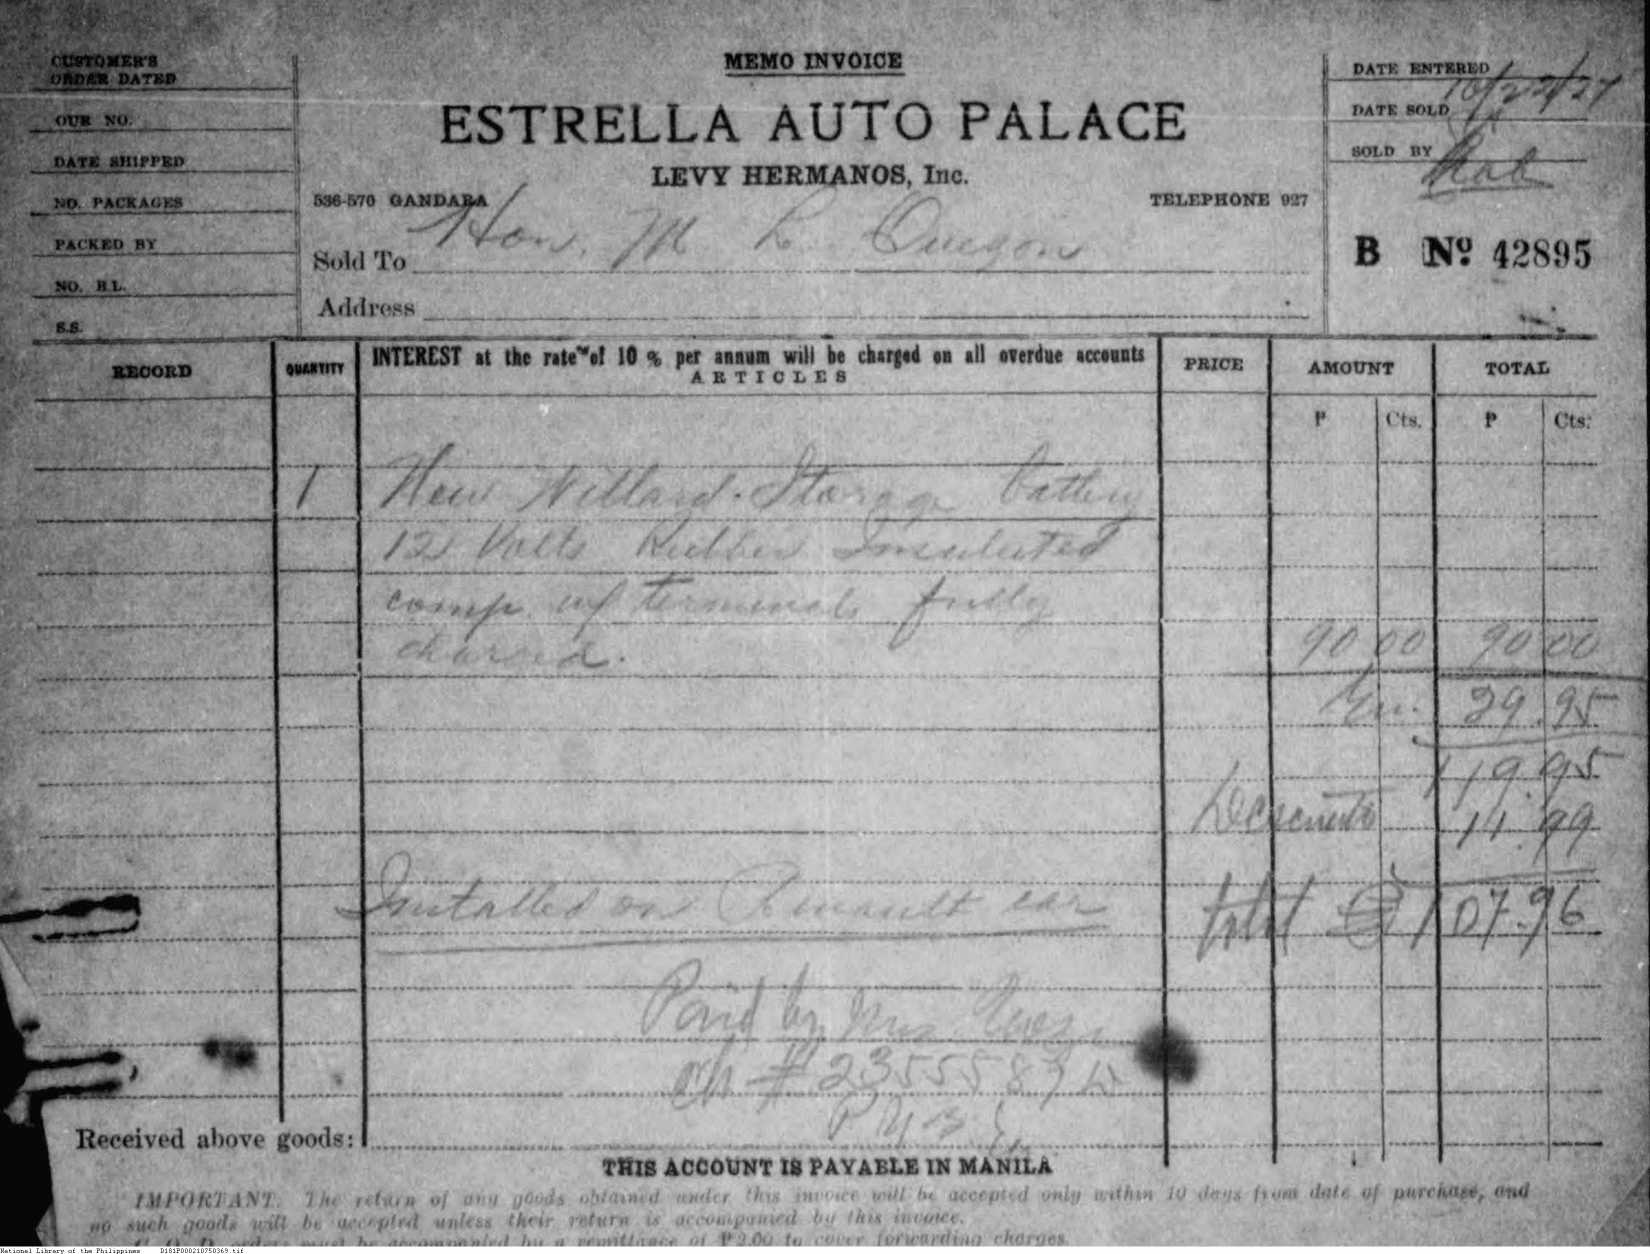 CUSTOMER'S
ORDER DATED
OUR NO.
DATE SHIPPED
NO. PACKAGES
PACKED BY
NO. B.L.
S.S.
MEMO INVOICE
ESTRELLA AUTO PALACE
LEVY HERMANOS, Inc.
536-570 GANDARA
TELEPHONE 927
Sold To Hon. M L Quezon
Address
DATE ENTERED
DATE SOLD
SOLD BY
B Nº 42895
RECORD
QUANTITY
INTEREST at the rate of 10 % per annum will be charged on all overdue accounts
ARTICLES
PRICE
AMOUNT
TOTAL
P Cts. P Cts.
1 New Willard Storage battery
12 Volts Rubber Insulated
comp. w/ terminals fully
charged. 90 00 90 00
29.95
119.95
Descuento 11.99
Installed on Renault car total 107.96
Paid by
ch #
Received above goods:
THIS ACCOUNT IS PAYABLE IN MANILA
IMPORTANT. The return of any goods obtained under this invoice will be accepted only within 10 days from date of purchase, and
no such goods will be accepted unless their return is accompanied by this invoice.
C. O. D. orders must be accompanied by a remittance of ₱2.00 to cover forwarding charges.
National Library of the Philippines D181P000210750369.tif